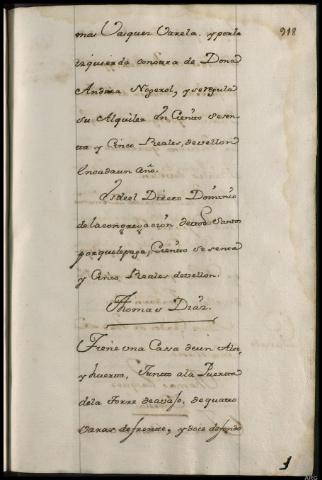 918
mas Vasquez Varela. y por la
izquierda con otra de Dona
Andrea Nogerol, y se regula
su Alquiler en Ciento sesen
ta y Cinco Reales, de vellon
en cada un año.
Es del Direto Dominio
de la congregazion de todos Santos
por que le paga, Ciento sesenta
y Cinco Reales de vellon.
Thomas Diaz.
Tiene una Casa de un Alto,
y huerto, Junto a la Puerta
de la Torre de avajo, de quatro
varas de frente, y doce de fondo